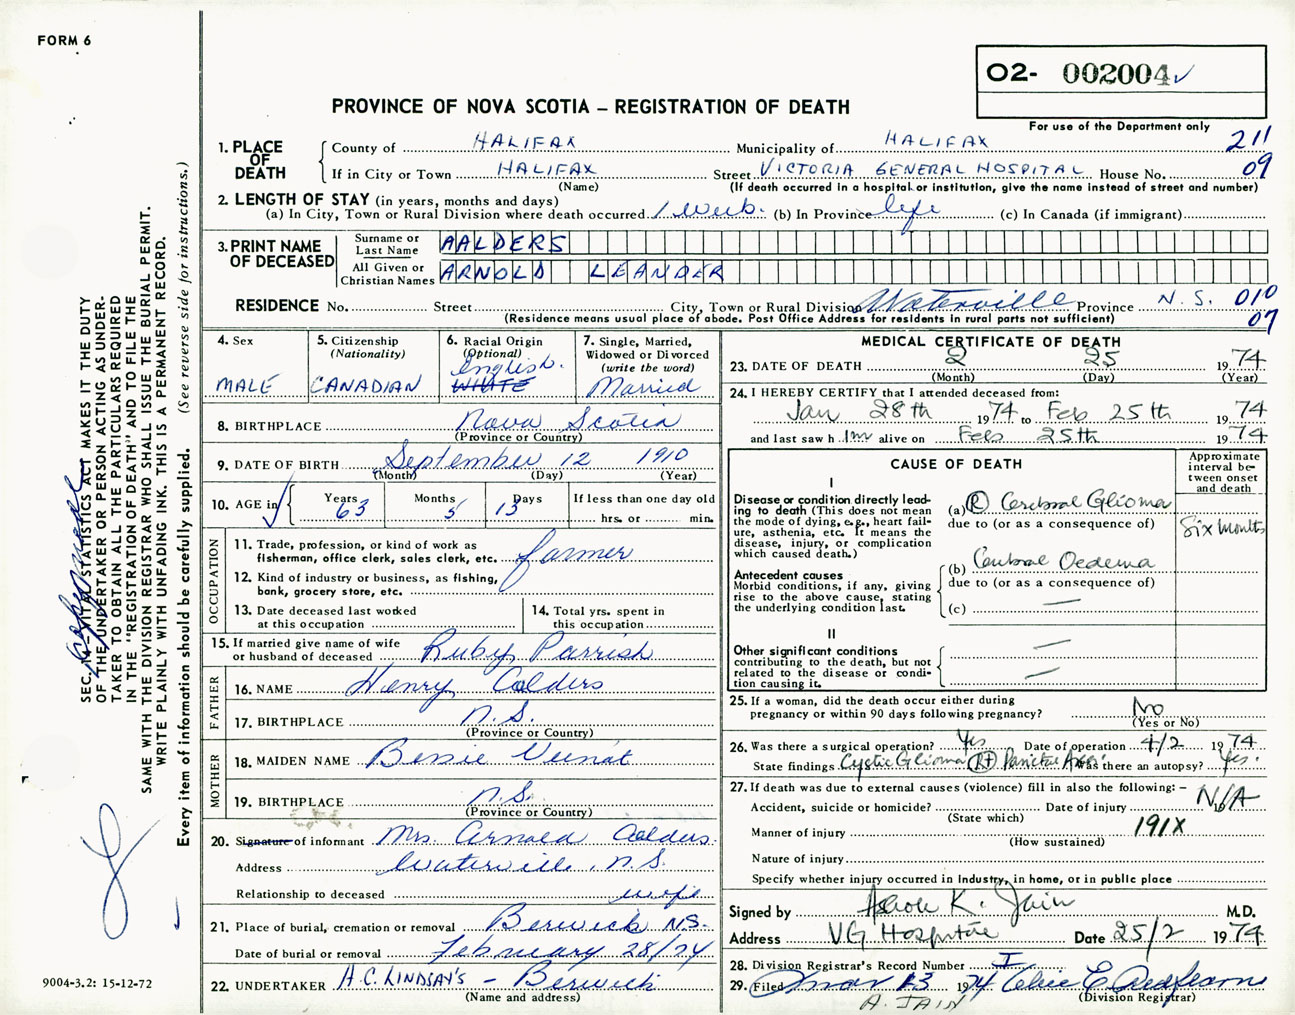 FORM 6
O2- 002004
For use of the Department only
PROVINCE OF NOVA SCOTIA – REGISTRATION OF DEATH
211
09
1. PLACE OF DEATH
County of HALIFAX Municipality of HALIFAX
If in City or Town HALIFAX Street VICTORIA GENERAL HOSPITAL House No.
(Name) (If death occurred in a hospital or institution, give the name instead of street and number)
2. LENGTH OF STAY (in years, months and days)
(a) In City, Town or Rural Division where death occurred 1 week. (b) In Province life (c) In Canada (if immigrant)
3. PRINT NAME OF DECEASED
Surname or Last Name AALDERS
All Given or Christian Names ARNOLD LEANDER
RESIDENCE No. Street City, Town or Rural Division Waterville Province N.S. 010
(Residence means usual place of abode. Post Office Address for residents in rural parts not sufficient) 07
4. Sex
MALE
5. Citizenship
(Nationality)
CANADIAN
6. Racial Origin
(Optional)
English.
WHITE
7. Single, Married,
Widowed or Divorced
(write the word)
Married
8. BIRTHPLACE Nova Scotia
(Province or Country)
9. DATE OF BIRTH September 12 1910
(Month) (Day) (Year)
10. AGE in Years 63 Months 5 Days 13 If less than one day old
hrs. or min.
OCCUPATION
11. Trade, profession, or kind of work as
fisherman, office clerk, sales clerk, etc. farmer
12. Kind of industry or business, as fishing,
bank, grocery store, etc.
13. Date deceased last worked
at this occupation
14. Total yrs. spent in
this occupation
15. If married give name of wife
or husband of deceased Ruby Parrish
FATHER
16. NAME Henry Aalders
17. BIRTHPLACE N.S.
(Province or Country)
MOTHER
18. MAIDEN NAME Bessie
19. BIRTHPLACE N.S.
(Province or Country)
20. Signature of informant Mrs. Arnold Aalders
Address Waterville, N.S.
Relationship to deceased wife
21. Place of burial, cremation or removal Berwick N.S.
Date of burial or removal February 28/74
22. UNDERTAKER H.C. LINDSAY'S – Berwick
(Name and address)
MEDICAL CERTIFICATE OF DEATH
23. DATE OF DEATH 2 25 1974
(Month) (Day) (Year)
24. I HEREBY CERTIFY that I attended deceased from:
Jan 28th 1974 to Feb 25th 1974
and last saw him alive on Feb 25th 1974
CAUSE OF DEATH
Approximate
interval be-
tween onset
and death
I
Disease or condition directly lead-
ing to death (This does not mean
the mode of dying, e.g., heart fail-
ure, asthenia, etc. It means the
disease, injury, or complication
which caused death.)
(a) R Cerebral Glioma
due to (or as a consequence of)
Six months
Antecedent causes
Morbid conditions, if any, giving
rise to the above cause, stating
the underlying condition last.
(b) Cerebral Oedema
due to (or as a consequence of)
(c) —
II
Other significant conditions
contributing to the death, but not
related to the disease or condi-
tion causing it.
25. If a woman, did the death occur either during
pregnancy or within 90 days following pregnancy? No
(Yes or No)
26. Was there a surgical operation? Yes Date of operation 4/2 1974
State findings Cystic Glioma Rt Was there an autopsy? Yes.
27. If death was due to external causes (violence) fill in also the following: – N/A
Accident, suicide or homicide? Date of injury
(State which)
Manner of injury 191X
(How sustained)
Nature of injury
Specify whether injury occurred in industry, in home, or in public place
Signed by Ashok K. Jain M.D.
Address V.G Hospital Date 25/2 1974
28. Division Registrar's Record Number I
29. Filed Mar 13 1974
(Division Registrar)
A. JAIN
SEC. 14 VITAL STATISTICS ACT MAKES IT THE DUTY
OF THE UNDERTAKER OR PERSON ACTING AS UNDER-
TAKER TO OBTAIN ALL THE PARTICULARS REQUIRED
IN THE "REGISTRATION OF DEATH" AND TO FILE THE
SAME WITH THE DIVISION REGISTRAR WHO SHALL ISSUE THE BURIAL PERMIT.
WRITE PLAINLY WITH UNFADING INK. THIS IS A PERMANENT RECORD.
Every item of information should be carefully supplied. (See reverse side for instructions.)
9004-3.2: 15-12-72